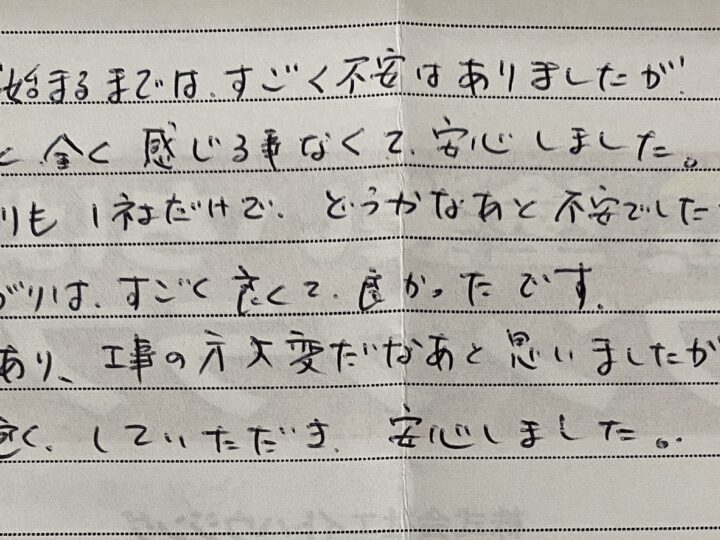 始まるまでは、すごく不安はありましたが
と、全く感じる事なくて、安心しました。
りも1社だけで、どうかなあと不安でした
がりは、すごく良くて、良かったです。
あり、工事の方大変だなあと思いましたが
良く、していただき、安心しました。
株式会社エイトハウジング